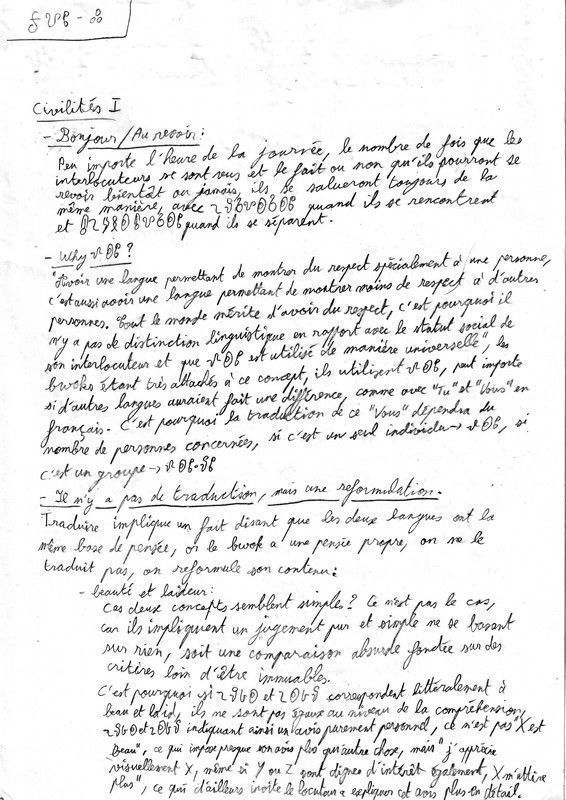 Civilités I
- Bonjour/Au revoir:
Peu importe l'heure de la journée, le nombre de fois que les
interlocuteurs se sont vus et le fait ou non qu'ils pourront se
revoir bientôt ou jamais, ils se salueront toujours de la
même manière, avec quand ils se rencontrent
et quand ils se séparent.
- Why ?
"Avoir une langue permettant de montrer du respect spécialement à une personne,
c'est aussi avoir une langue permettant de montrer moins de respect à d'autres
personnes. Tout le monde mérite d'avoir du respect, c'est pourquoi il
n'y a pas de distinction linguistique en rapport avec le statut social de
son interlocuteur et que est utilisé de manière universelle", les
bwoks étant très attachés à ce concept, ils utilisent , peut importe
si d'autres langues auraient fait une différence, comme avec "Tu" et "Vous" en
français. C'est pourquoi la traduction de ce "Vous" dépendra du
nombre de personnes concernées, si c'est un seul individu → , si
c'est un groupe →
- Il n'y a pas de traduction, mais une reformulation.
Traduire implique un fait disant que les deux langues ont la
même base de pensée, or le bwok a une pensée propre, on ne le
traduit pas, on reformule son contenu:
- beauté et laideur:
Ces deux concepts semblent simples? Ce n'est pas le cas,
car ils impliquent un jugement pur et simple ne se basant
sur rien, soit une comparaison absurde fondée sur des
critères loin d'être immuables.
C'est pourquoi si et correspondent littéralement à
beau et laid, ils ne sont pas égaux au niveau de la compréhension,
et indiquant ainsi un avis purement personnel, ce n'est pas "X est
beau", ce qui impose presque son avis plus qu'autre chose, mais "j'apprécie
visuellement X, même si Y ou Z sont dignes d'intérêt également, X m'attire
plus", ce qui d'ailleurs invite le locuteur a expliquer cet avis plus en détail.